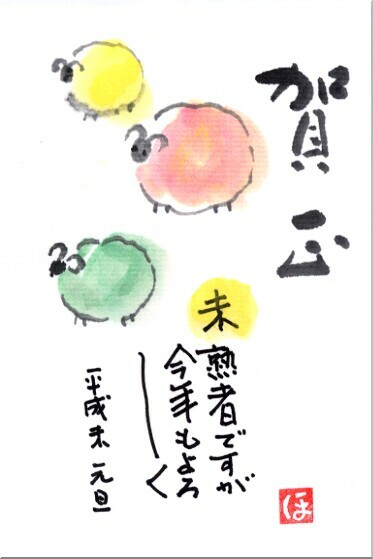 賀正
未熟者ですが
今年もよろ
しく
平成未元旦
ほ